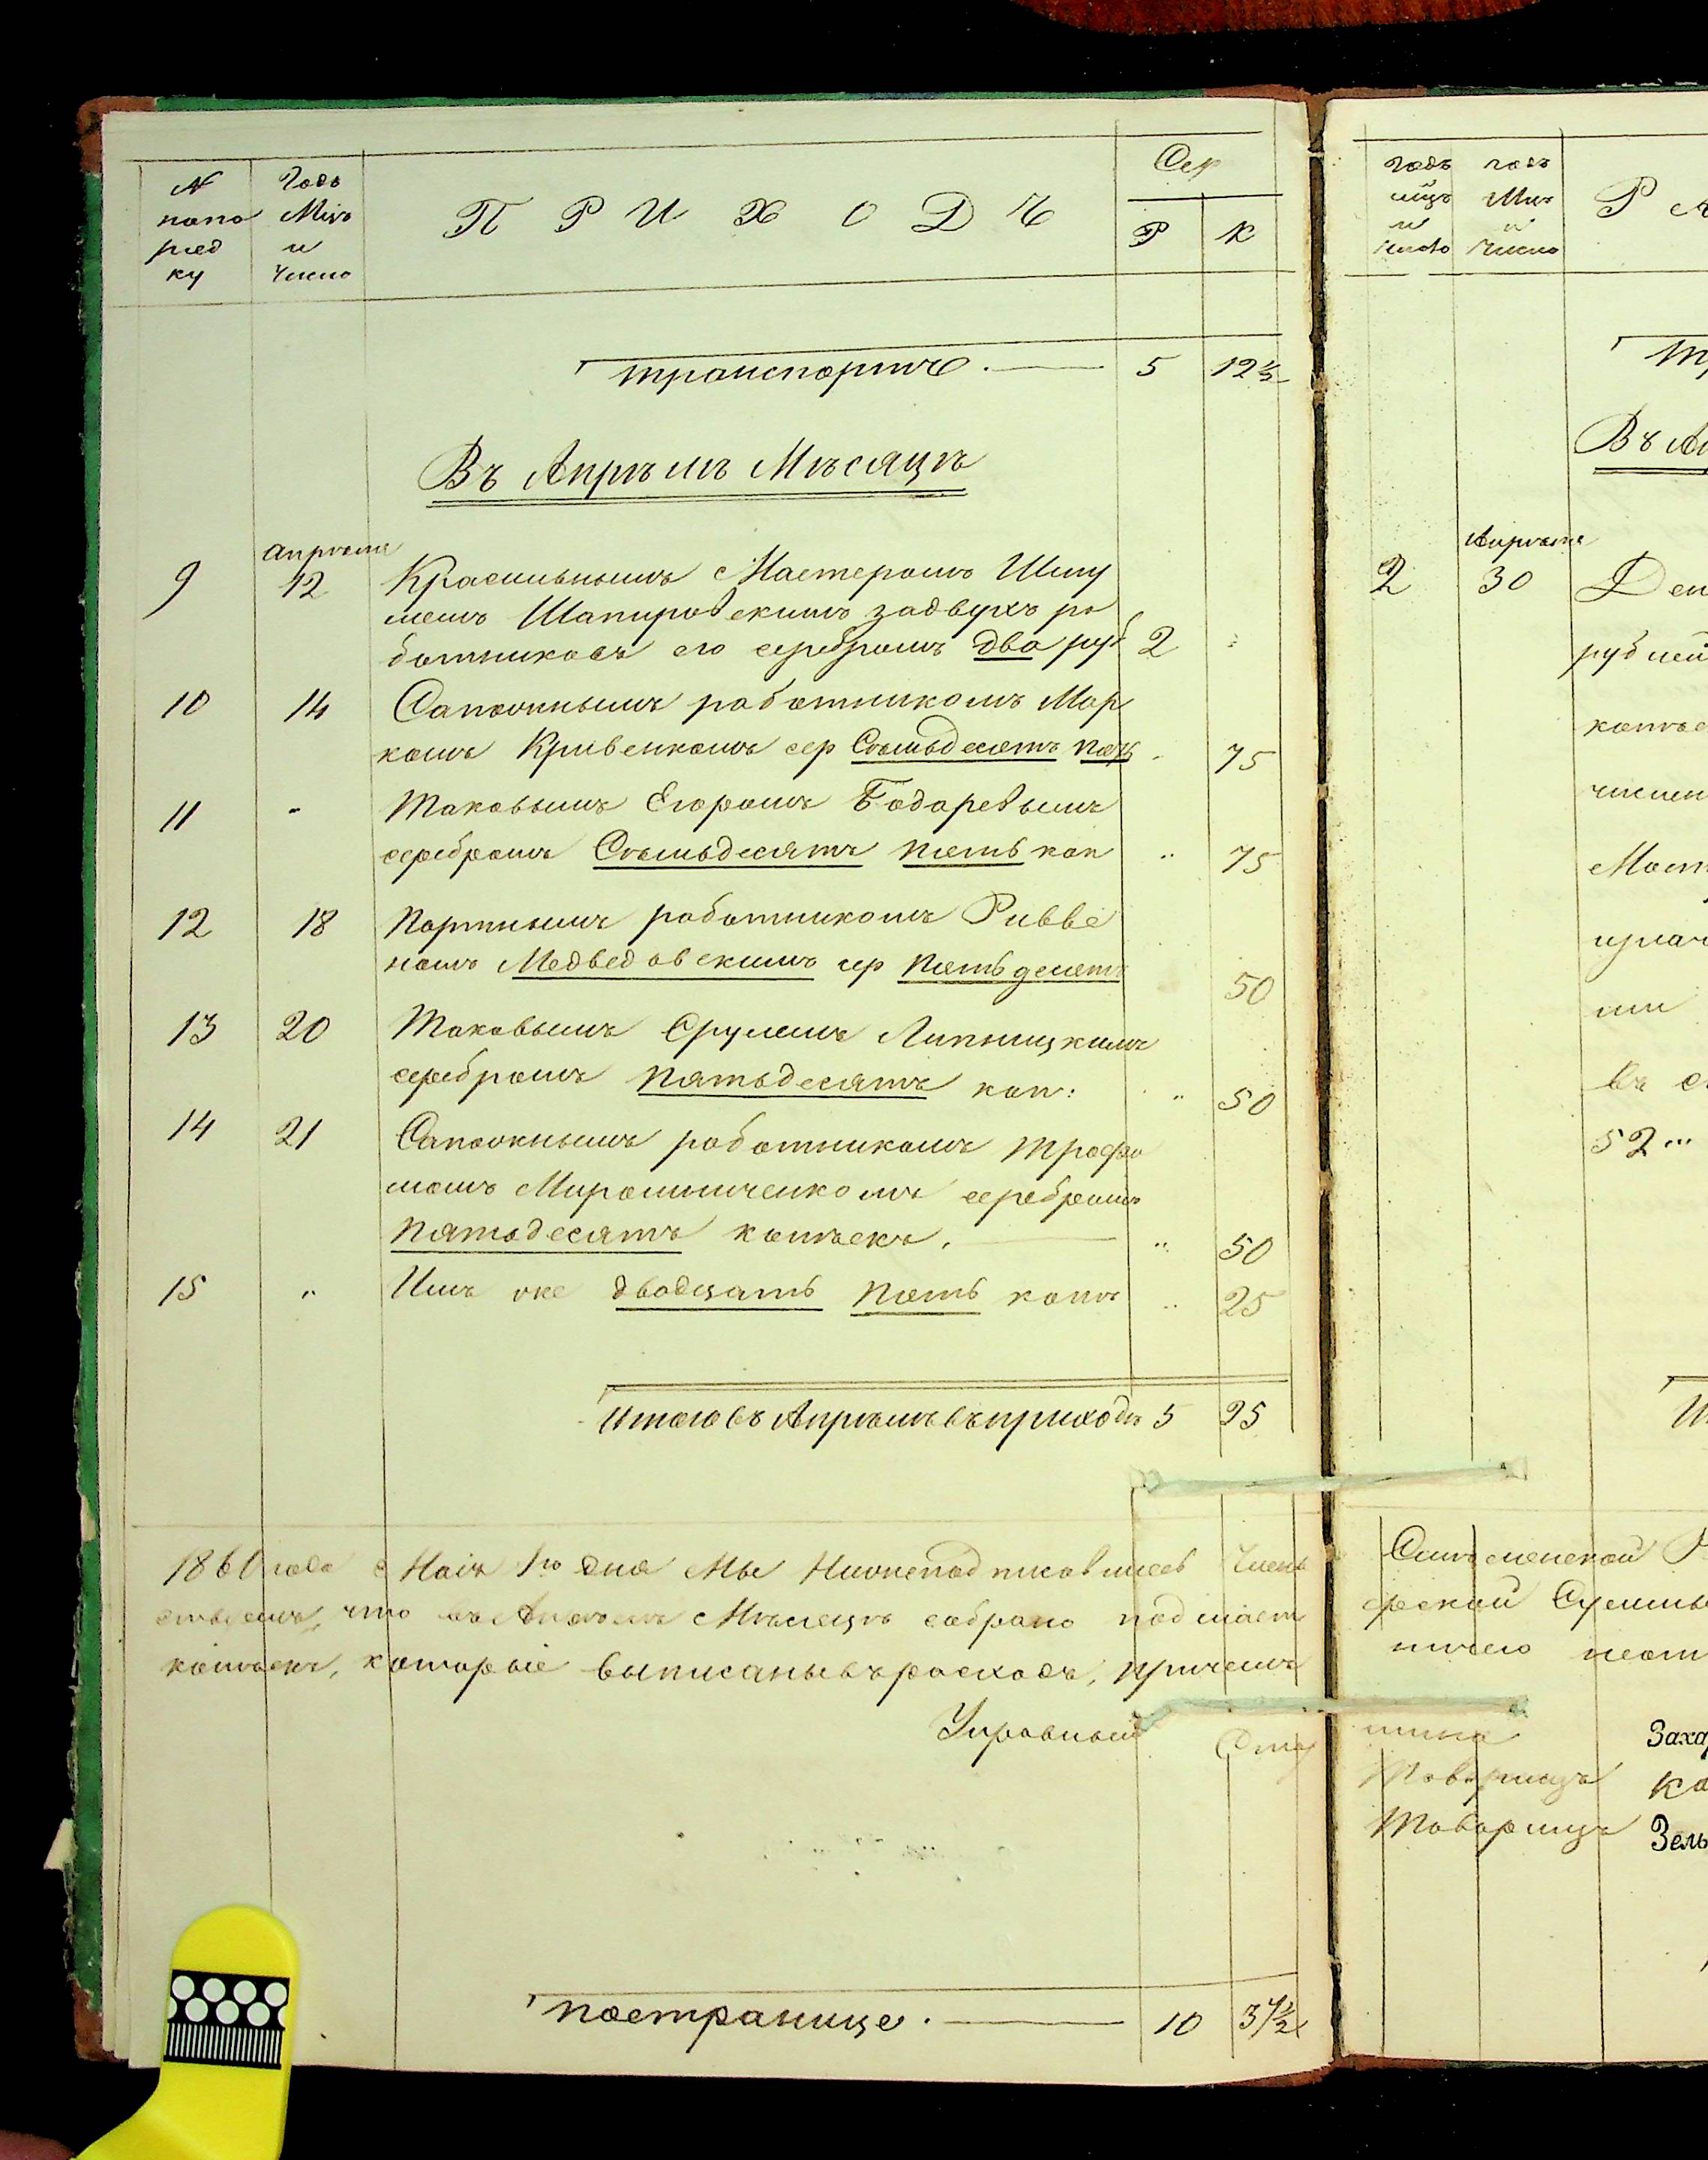 N
Годъ
попо
Мѣсъ
ряд
и
ку
Число
ПРИХОДЪ
Сер
Р
К
транспортъ. 5 12½
Въ Апрѣлѣ Мѣсяцѣ
Апрѣля
9 12 Красильнымъ Мастеромъ Шму
лемъ Шапировскимъ за двухъ ра
ботниковъ его серебромъ два руб 2
10 14 Сапожнымъ работникомъ Мар
комъ Кривенкомъ сер Семьдесятъ пять 75
11 - Таковымъ Егоромъ Бодаревымъ
серебромъ Семьдесятъ пять коп " 75
12 18 Портнымъ работникомъ Рувве
номъ Медведовскимъ сер пятьдесятъ 50
13 20 Таковымъ Срулемъ Липницкимъ
серебромъ пятьдесятъ коп: " 50
14 21 Сапожнымъ работникомъ Трофи
момъ Мирошниченкомъ серебромъ
пятьдесятъ копѣекъ. " 50
15 " Имъ же двадцать пять копѣ " 25
Итого въ Апрѣлѣ въ приходѣ 5 25
1861 года Маія 1го дня Мы Нижеподписавшиеся Члены
что въ Апрѣлѣ Мѣсяцѣ собрано подмаст
копѣекъ, которые выписаны въ расходъ, причемъ
Управный Стар
пострануце. 10 37½
Годъ
годъ
мѣцъ
Мѣсъ
и
и
число
Число
Р А
Въ Ап
Апрѣля
2 30 Ден
рублей
копѣе
числен
Маст
ни
въ с
52
ничего неот
шина Заха
Товарищъ Ка
Товарищъ Зель